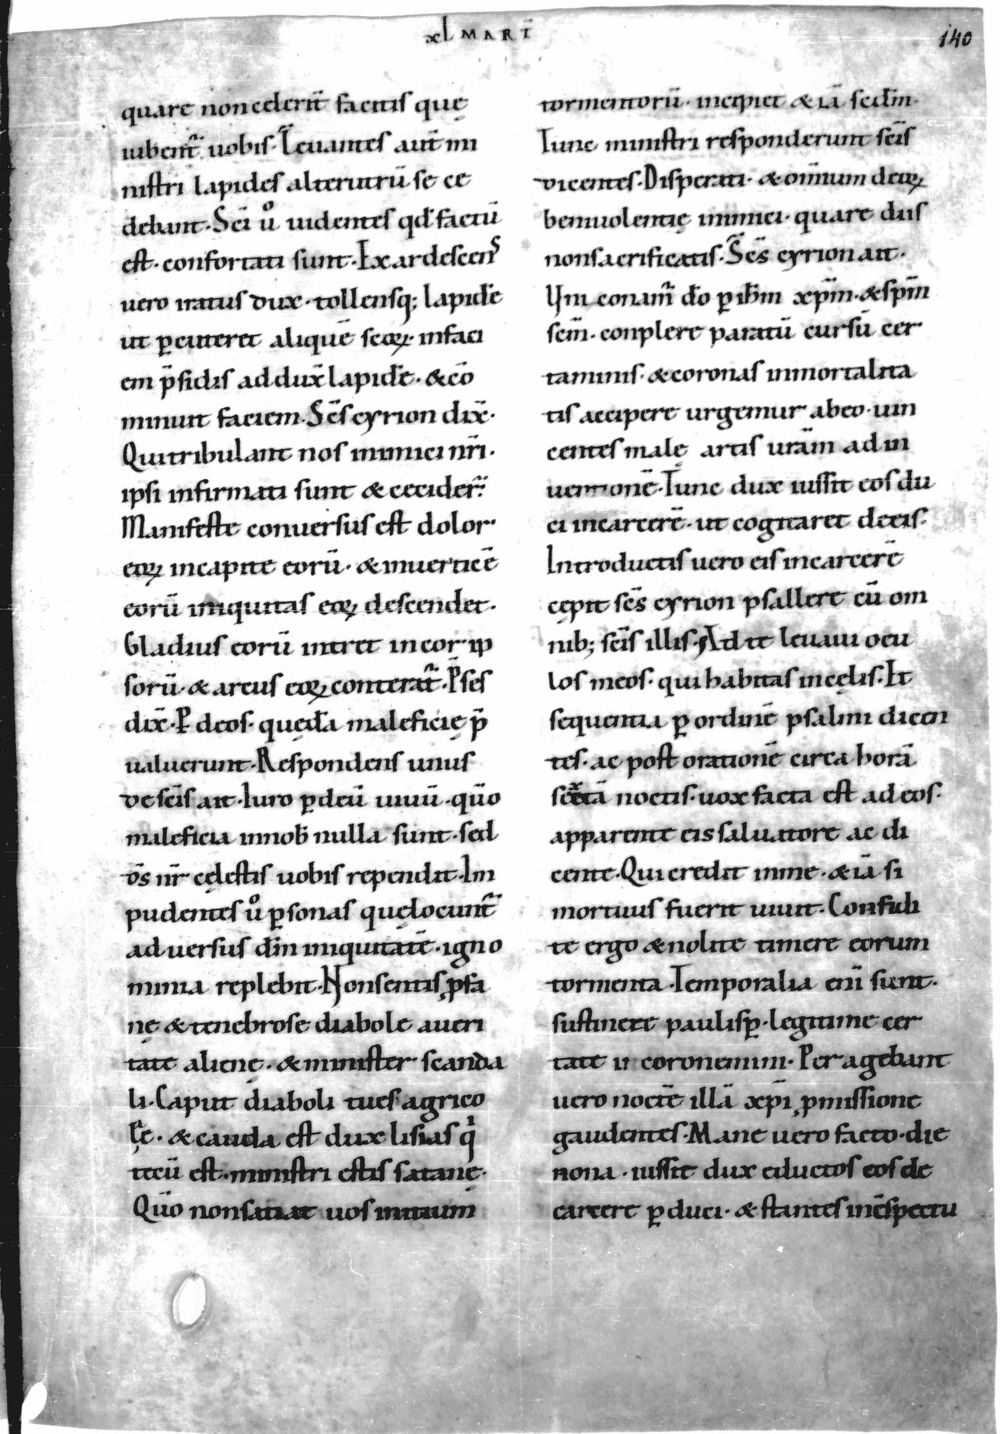 xl MART̄
140
quare non celerit̄ facitis quę
iubent̄ uobis. Leuantes aut̄ mi
nistri lapides alterutrū se ce
debant. Sc̄i ů uidentes qđ factū
est. confortati sunt. Exardescens
vero iratus dux. tollensq; lapidē
ut ꝑcuteret aliquē scoꝝ. in faci
em p̄sidis adduxͭ lapidē. & cō
minuit faciem. Sc̄s cyrion dix̄.
Qui tribulant nos inimici nr̄i.
ipsi infirmati sunt & cecider̄.
Manifeste conuersus est dolor
eoꝝ in capite eorū. & in uerticē
eorū iniquitas eoꝝ descendet.
Gladius eorū intret in cor ip
sorū. & arcus eoꝝ conterat̄. P̄ses
dix̄. P deos. quędā maleficię p̄
ualuerunt. Respondens unus
de sc̄is ait. Iuro ꝑ dēū uiuū. qūo
maleficia in nob̄ nulla sunt. sed
d̄s nr̄ cęlestis uobis rependit. Im
pudentes ů ꝑsonas quę locunt̄
aduersus dn̄i iniquitatē. igno
minia replebit. Non sentis ꝓfa
nę & tenebrose diabole a ueri
tate alienę. & minister scanda
li. Caput diaboli tu es agrico
lę. & cauda est dux lisias q̇
tecū est. ministri estis satanę.
Qūo non satiat uos initium
tormentorū. incipiet & iā sedm̄.
Tunc ministri responderunt sc̄is
dicentes. Disperati. & om̄ium deoꝝ
beniuolentię inimici. quare diis
non sacrificatis. Sc̄s cyrion ait.
Un̄i conam̄ dō ꝑ ih̄m xp̄m. & sp̄m
sc̄m. conplere paratū cursū cer
taminis. & coronas inmortalita
tis accipere urgemur ab eo. uin
centes malę artis ur̄am ad in
uentionē. Tunc dux iussit eos du
ci in carcerē. ut cogitaret de eis.
Introductis uero eis in carcerē
cępit sc̄s cyrion psallere cū om
nib; sc̄is illis. Ad te leuaui ocu
los meos. qui habitas in cęlis. Et
sequentia ꝑ ordinē psalmi dicen
tes. ac post orationē circa horā
sextā noctis. uox facta est ad eos.
apparente eis saluatore ac di
cente. Qui credit in me. & iā si
mortuus fuerit uiuit. Confidi
te ergo & nolite timere eorum
tormenta. Temporalia enī sunt.
sustinete paulisꝑ. legitime cer
tate ut coronemini. Per agebant
uero noctē illā xp̄i ꝓmissione
gaudentes. Mane uero facto. die
nona. iussit dux eductos eos de
carcere ꝑduci. & stantes in c̄spectu